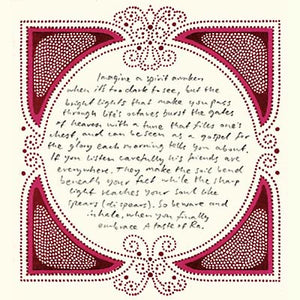 Imagine a spirit awaken
when it's too dark to see, but the
bright lights that make you pass
through life's octaves burst the gates
of heaven with a tune that fills one's
chest and can be seen as a gospel for
the glory each morning tells you about.
If you listen carefully his friends are
everywhere. They make the soil bend
beneath your feet while the sharp
light reaches your soul like
spears (di spears). So beware and
inhale, when you finally
embrace A taste of Ra.